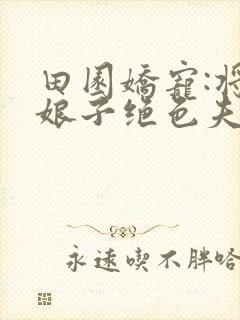 田園嬌寵:將
娘子绝色夫
永遠喫不胖哈